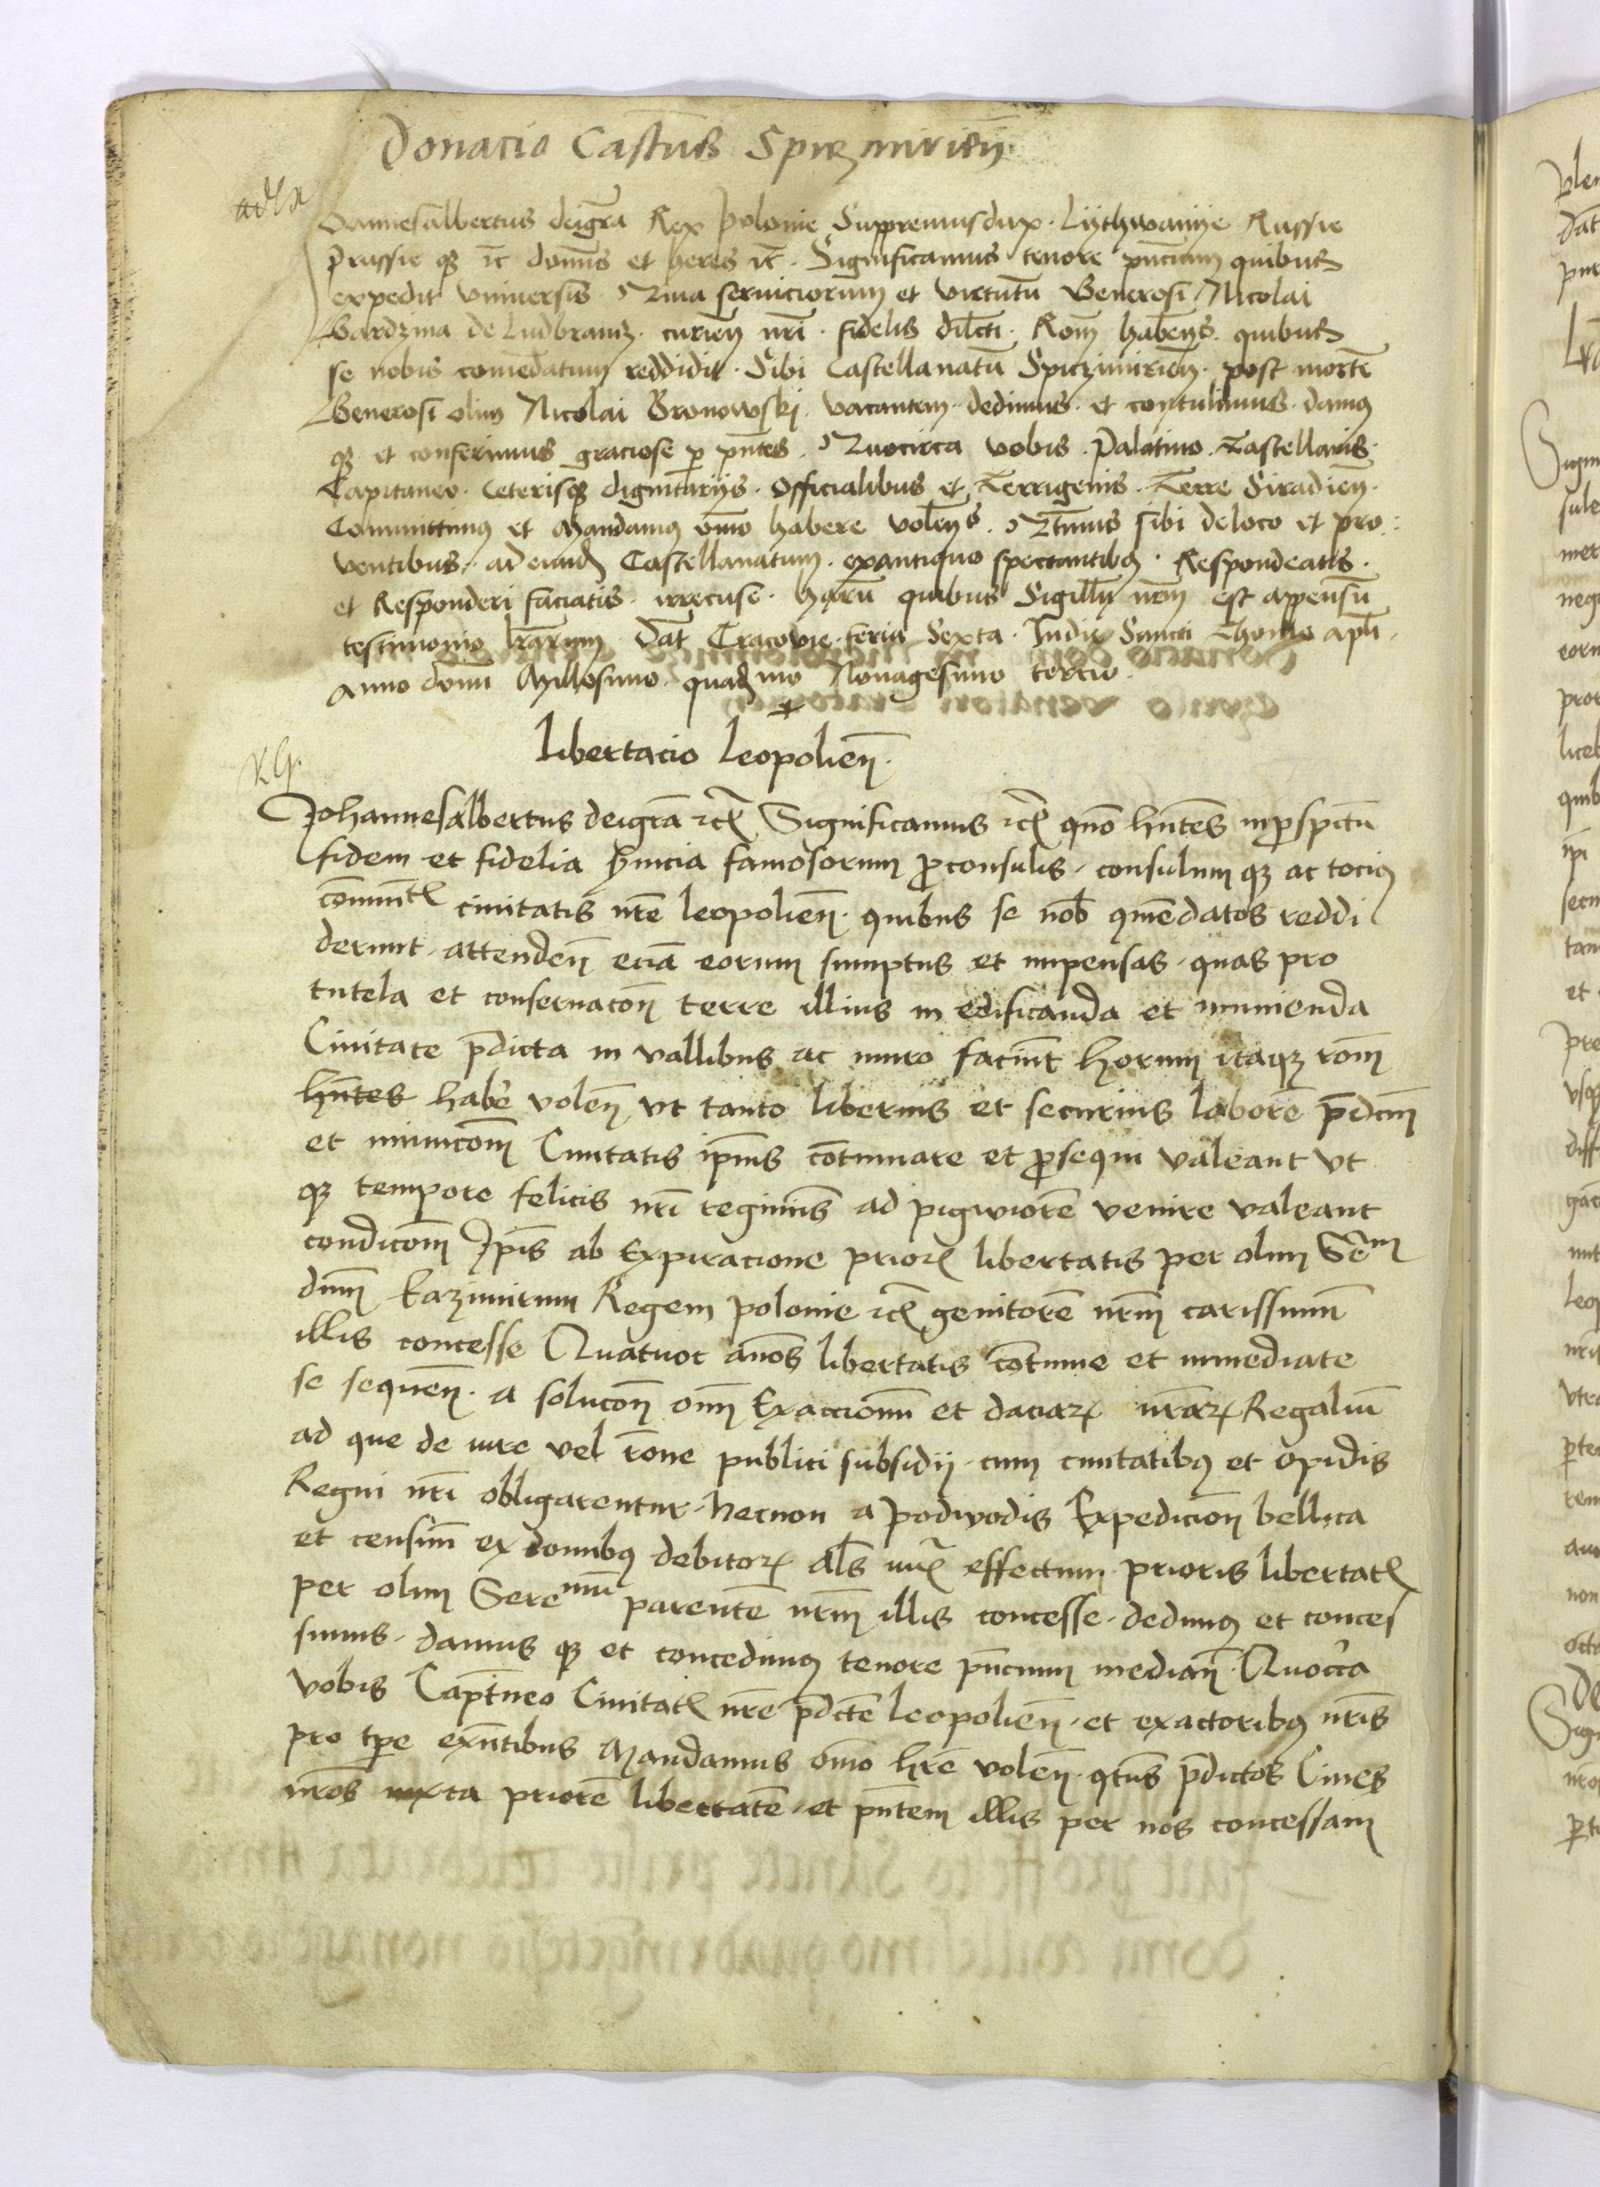 Donacio Castellanatus Spiczmirien̄.
Iohannesalbertus deigr̄a Rex Polonie Suppremusdux. Lythwanije Russie
Prussie qʒ ꝛc dominus et heres ꝛc̄. Significamus tenore pn̄cium quibus
expedit Vniuersis. Quia seruiciorum et virtutū Generosi Nicolai
Bardzina de Ludbrancz. curien̄ nr̄i. fidelis dilc̄ti. Rom̄ haben̄s. quibus
se nobis comēdatum reddidit. Sibi Castellanatū Spiczimirien̄. post mortē
Generosi olim Nicolai Gronowski. Vacantem. dedimus. et contulimus. damus
qʒ et conferimus graciose p pn̄tes. Quocirca vobis. Palatino. Castellanis.
Capitaneo. Ceterisqʒ dignitarijs. Officialibus et Terrigenis. Terre Siradien̄.
Committimus et Mandamus om̄o habere volen̄s. Qtinus sibi deloco et pro:
ventibus. ad eiusd̄ Castellanatum. exantiquo spectantibus. Respondeatis.
et Responderi faciatis. irrecuse. harū quibus Sigillū nrm̄ est appensū
testimonio lr̄arum. Dat̄ Cracovie. feria Sexta. Indie Sancti Thome apl̄i.
Anno domini Millesimo. quad̄mo Nonagesimo tercio.
Libertacio Leopolien̄.
Johannesalbertus deigr̄a ꝛc̄ Significamus ꝛc̄ quo hn̄tes inp̄spectu
fidem et fidelia svicia famosorum p̄consulis. consulum qʒ ac tocius
com̄unit̄ ciuitatis nr̄e leopolien̄. quibus se nob̄ comēdatos reddi
derunt. attenden̄ eciā eorum sumptus et impensas. quas pro
tutela et conseruacon̄ terre illius in edificanda et munienda
Ciuitate p̄dicta in vallibus ac muro faciunt horum itaqʒ rom̄
hn̄tes habe volen̄ vt tanto liberius et securius laborē p̄dcm̄
et municom̄ Ciuitatis ipius cōtinuare et p̄sequi valeant vt
qʒ tempore felicis nr̄i regiminis ad pigwiorē venire valeant
condicom̄ Ip̄is ab Expiracione prior̄ libertatis per olim Sem̄
dnm̄ kazimirum Regem polonie ꝛc̄ genitorē nrm̄ carissimū
illis concesse Quatuor anos libertatis cōtinue et inmediate
se sequen̄. a solucon̄ om̄ Exaccionū et daciar̄ nr̄ar̄ Regaliū
ad que de iure vel rōne publici subsidij. cum ciuitatibus et opidis
Regni nr̄i obligarentur. Necnon a podwodis Expedicion̄ bellica
et censim̄ ex domibus debitor̄ als̄ iux̄ effectum prioris libertat̄
per olim Serenmū parentē nrm̄ illis concesse. dedimus et conces
simus. damus qʒ et concedimus tenore pn̄cium median̄. Quoc̄ca
vobis Capt̄neo Ciuitat̄ nr̄e p̄dcte leopolien̄. et exactoribus nr̄is
pro tp̄e exn̄tibus Mandamus om̄o hr̄e volen̄. qtus p̄dictos Ciues
nr̄os iuxta priorē libertatē. et pn̄tem illis per nos concessam